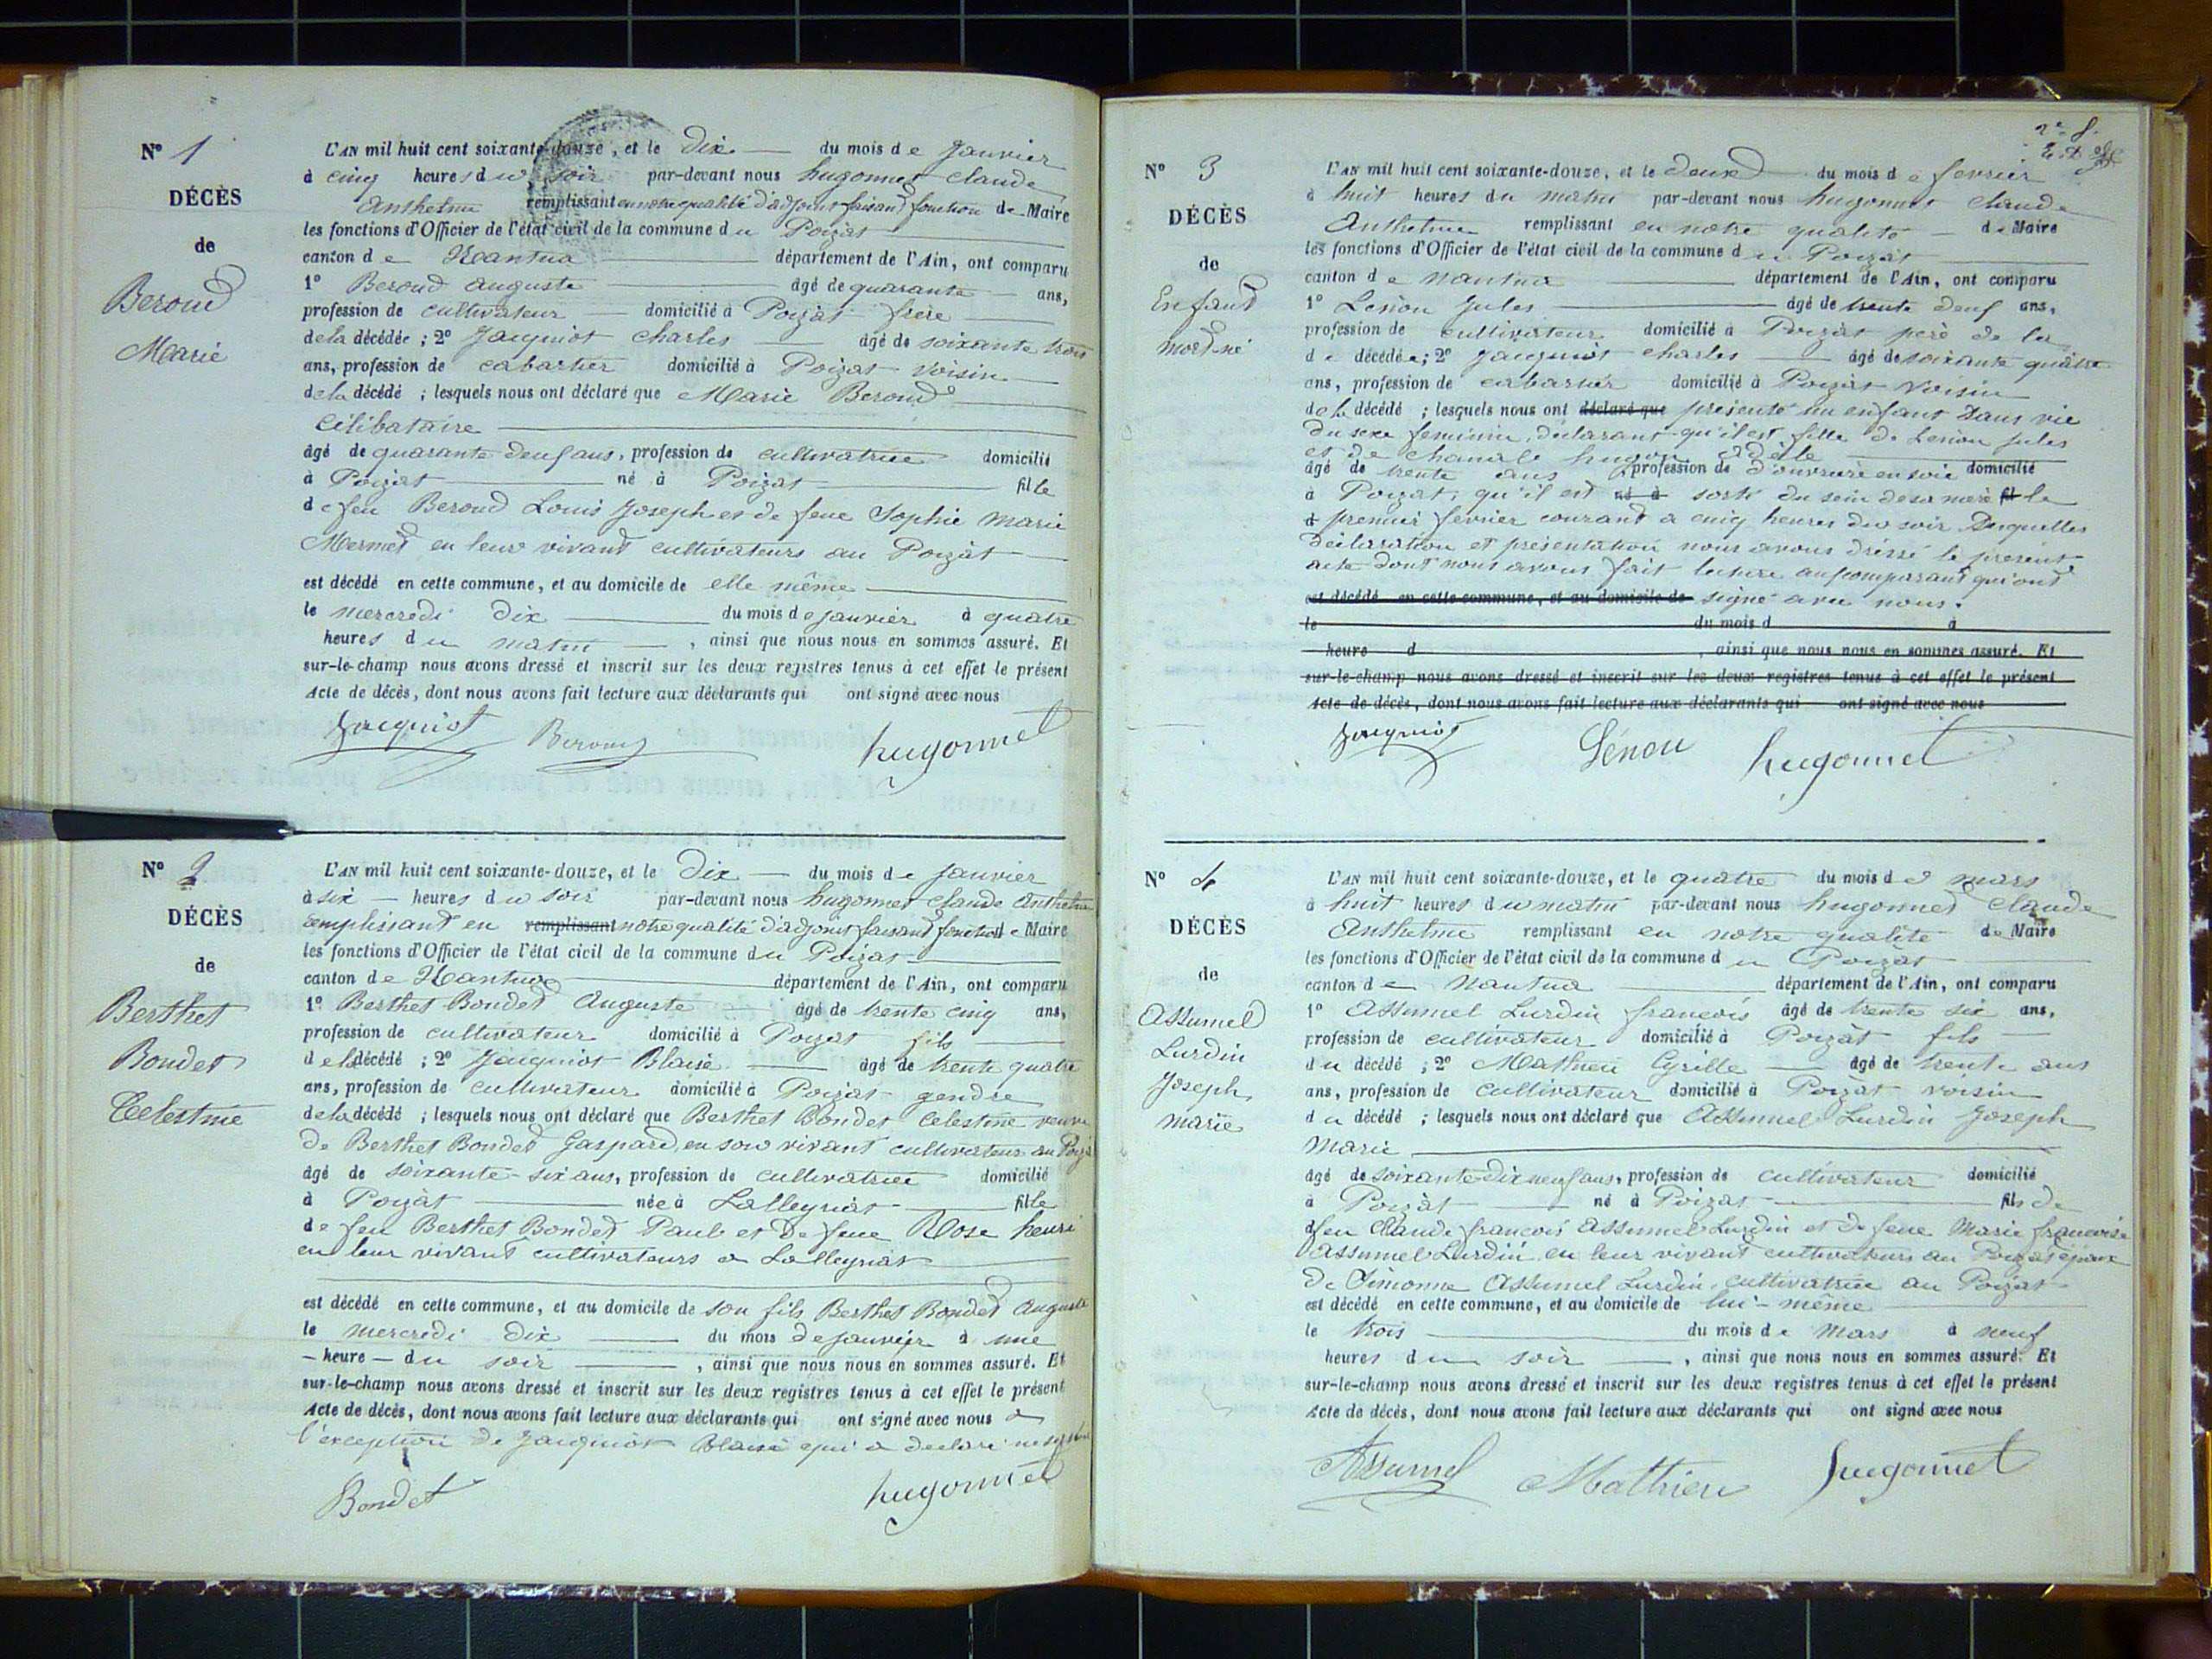 Nº 1
DÉCÈS
de
Beroud
Marie
L'AN mil huit cent soixante-douze, et le Dix du mois de Janvier
à cinq heures du soir par-devant nous hugonnet Claude
Anthelme remplissant en notre qualité d'adjoint faisant fonction de Maire
les fonctions d'Officier de l'état civil de la commune du Poizat
canton de Nantua département de l'Ain, ont comparu
1º Beroud Auguste âgé de quarante ans,
profession de cultivateur domicilié à Poizat frère
de la décédée ; 2º Jacquiot Charles âgé de soixante trois
ans, profession de cabartier domicilié à Poizat voisin
de la décédé ; lesquels nous ont déclaré que Marie Beroud
Célibataire
âgé de quarante deux ans, profession de cultivatrice domicilié
à Poizat né à Poizat fille
de feu Beroud Louis Joseph et de feue Sophie Marie
Mermet en leur vivant cultivateurs au Poizat
est décédé en cette commune, et au domicile de elle même
le mercredi dix du mois de janvier à quatre
heures du matin , ainsi que nous nous en sommes assuré. Et
sur-le-champ nous avons dressé et inscrit sur les deux registres tenus à cet effet le présent
Acte de décès, dont nous avons fait lecture aux déclarants qui ont signé avec nous
Jacquiot Beroud hugonnet
Nº 2
DÉCÈS
de
Berthet
Bondet
Celestine
L'AN mil huit cent soixante-douze, et le Dix du mois de Janvier
à six heures du soir par-devant nous hugonnet Claude Anthelme
remplissant en remplissant notre qualité d'adjoint faisant fonction de Maire
les fonctions d'Officier de l'état civil de la commune du Poizat
canton de Nantua département de l'Ain, ont comparu
1º Berthet Bondet Auguste âgé de trente cinq ans,
profession de cultivateur domicilié à Poizat fils
de la décédé ; 2º Jacquiot Blaise âgé de trente quatre
ans, profession de cultivateur domicilié à Poizat gendre
de la décédé ; lesquels nous ont déclaré que Berthet Bondet Celestine veuve
de Berthet Bondet Gaspard, en son vivant cultivateur au Poizat
âgé de soixante-six ans, profession de cultivatrice domicilié
à Poizat née à Lalleyriat fille
de feu Berthet Bondet Paul et de feue Rose henri
en leur vivant cultivateurs a Lalleyriat
est décédé en cette commune, et au domicile de son fils Berthet Bondet Auguste
le mercredi dix du mois de janvier à une
heure du soir , ainsi que nous nous en sommes assuré. Et
sur-le-champ nous avons dressé et inscrit sur les deux registres tenus à cet effet le présent
Acte de décès, dont nous avons fait lecture aux déclarants qui ont signé avec nous a
l'exception de Jacquiot Blaise qui a declaré
Bondet hugonnet
Nº 3
DÉCÈS
de
Enfant
mort né
L'AN mil huit cent soixante-douze, et le deux du mois de fevrier
à huit heures du matin par-devant nous hugonnet Claude
Anthelme remplissant en notre qualité de Maire
les fonctions d'Officier de l'état civil de la commune du Poizat
canton de Nantua département de l'Ain, ont comparu
1º Lenon Jules âgé de trente deux ans,
profession de cultivateur domicilié à Poizat père de la
de décédée ; 2º Jacquiot Charles âgé de soixante quatre
ans, profession de cabartier domicilié à Poizat voisin
de la décédé ; lesquels nous ont déclaré que présenté un enfant sans vie
du sexe feminin, déclarant qu'il est fille de Lenon jules
et de hugon adele
âgé de trente ans profession de d'ouvrière en soie domicilié
à Poizat, qu'il est né à sorti du sein de sa mère fil le
d premier fevrier courant a cinq heures du soir Desquelles
declaration et présentation nous avons dréssé le présent
acte dont nous avons fait lecture aux comparant qui ont
est décédé en cette commune, et au domicile de signé avec nous.
le du mois d à
heure d , ainsi que nous nous en sommes assuré. Et
sur-le-champ nous avons dressé et inscrit sur les deux registres tenus à cet effet le présent
Acte de décès, dont nous avons fait lecture aux déclarants qui ont signé avec nous
Jacquiot Lénon hugonnet
Nº 4
DÉCÈS
de
Assumel
Lurdin
Joseph
marie
L'AN mil huit cent soixante-douze, et le quatre du mois de mars
à huit heures du matin par-devant nous hugonnet Claude
Anthelme remplissant en notre qualité de Maire
les fonctions d'Officier de l'état civil de la commune du Poizat
canton de Nantua département de l'Ain, ont comparu
1º Assumel Lurdin françois âgé de trente six ans,
profession de cultivateur domicilié à Poizat fils
du décédé ; 2º Mathieu Cyrille âgé de trente ans
ans, profession de cultivateur domicilié à Poizat voisin
du décédé ; lesquels nous ont déclaré que Assumel Lurdin Joseph
Marie
âgé de soixante dix neuf ans, profession de cultivateur domicilié
à Poizat né à Poizat fils de
d feu Claude françois Assumel Lurdin et de feue Marie françoise
Assumel Lurdin en leur vivant cultivateurs au Poizat époux
de Simonne Assumel Lurdin, cultivatrice au Poizat
est décédé en cette commune, et au domicile de lui-même
le trois du mois de mars à neuf
heures du soir , ainsi que nous nous en sommes assuré. Et
sur-le-champ nous avons dressé et inscrit sur les deux registres tenus à cet effet le présent
Acte de décès, dont nous avons fait lecture aux déclarants qui ont signé avec nous
Assumel Mathieu hugonnet